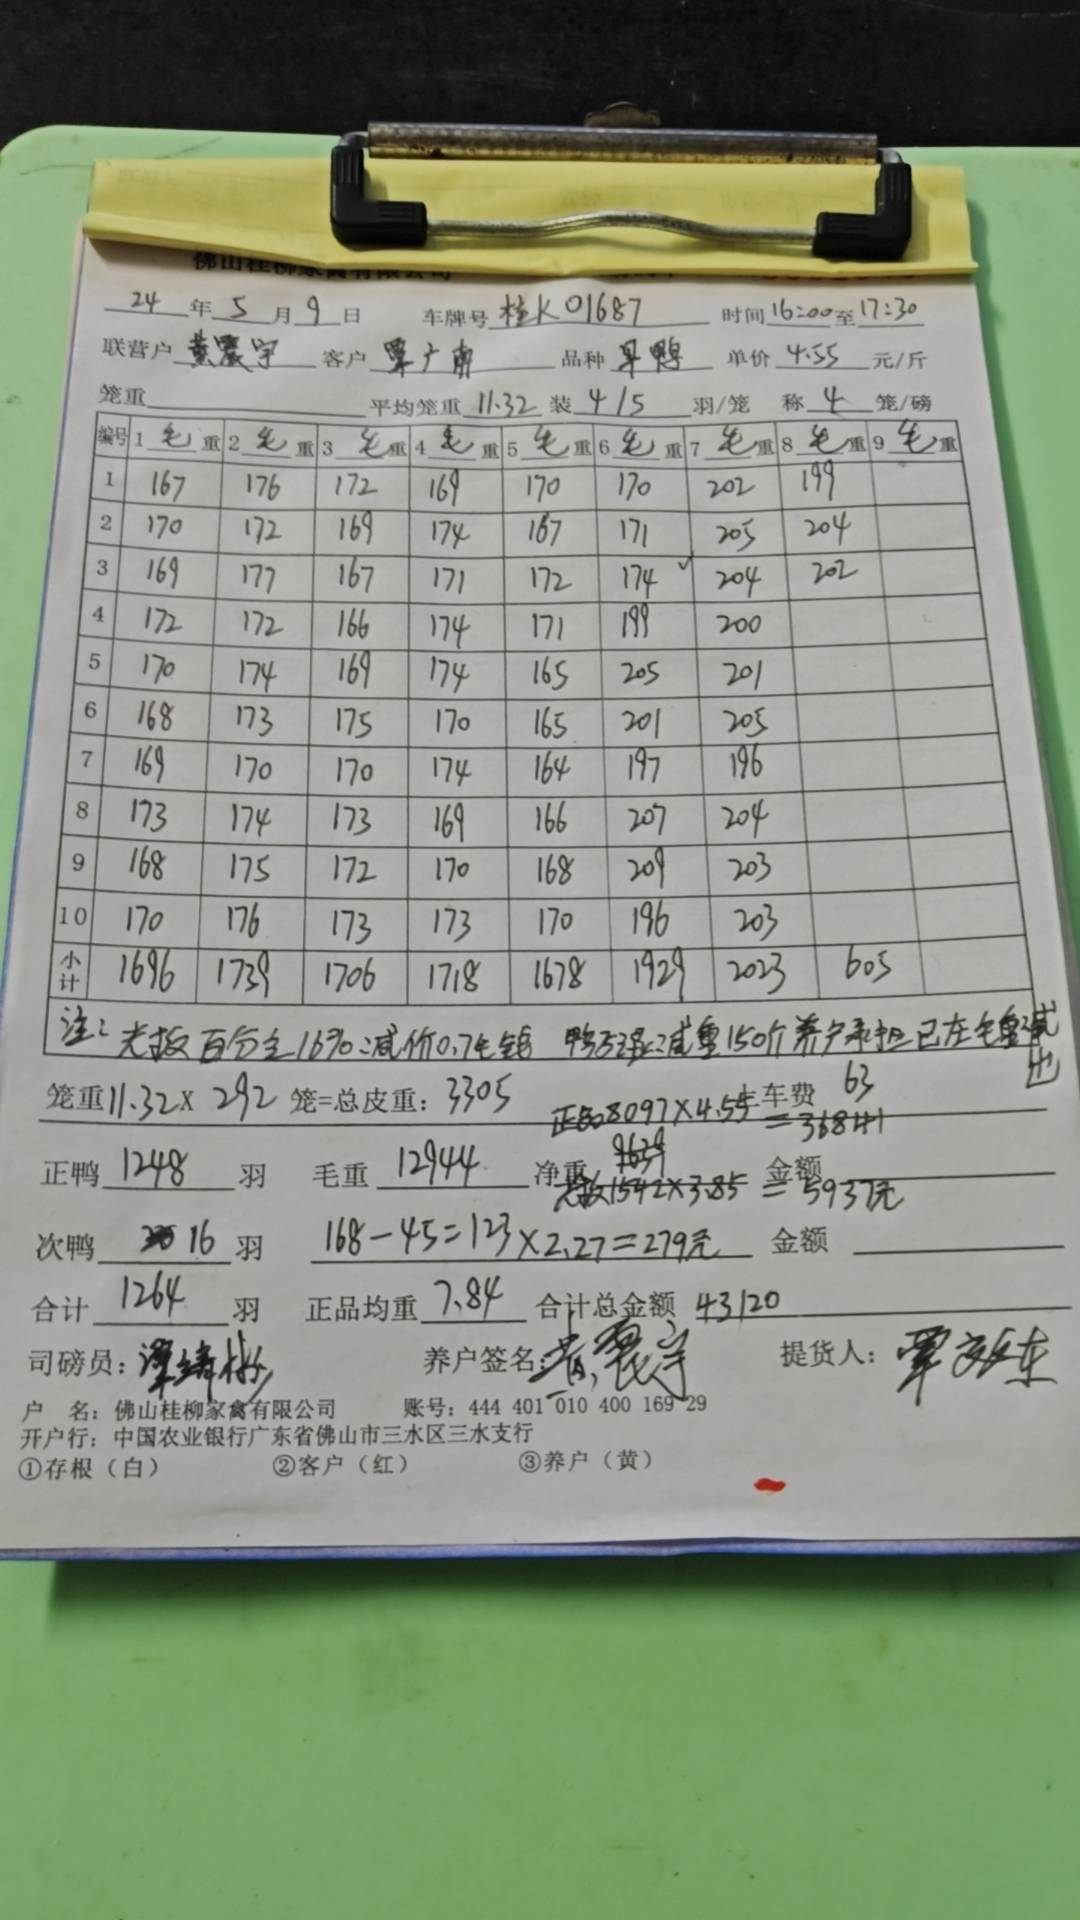 佛山桂柳家禽有限公司
24 年 5 月 9 日 车牌号 桂K01687 时间 16:00 至 17:30
联营户 黄震宇 客户 覃广南 品种 单价 4.55 元/斤
笼重 平均笼重 11.32 装 4/5 羽/笼 称 4 笼/磅
编号 1 毛重 2 毛重 3 毛重 4 毛重 5 毛重 6 毛重 7 毛重 8 毛重 9 毛重
1 167 176 172 169 170 170 202 199
2 170 172 169 174 167 171 205 204
3 169 177 167 171 172 174 204 202
4 172 172 166 174 171 199 200
5 170 174 169 174 165 205 201
6 168 173 175 170 165 201 205
7 169 170 170 174 164 197 196
8 173 174 173 169 166 207 204
9 168 175 172 170 168 209 203
10 170 176 173 173 170 196 203
小计 1696 1739 1706 1718 1678 1929 2023 605
注: 百分之16% 减价0.7毛 减重150斤 养户承担 已在毛重减出
笼重 11.32 X 292 笼=总皮重: 3305 车费 63
正品8097×4.55=36841
正鸭 1248 羽 毛重 12944 净重 9639 金额
1542×3.85=5937元
次鸭 16 羽 168-45=123×2.27=279元 金额
合计 1264 羽 正品均重 7.84 合计总金额 43120
司磅员: 养户签名: 黄震宇 提货人:
户 名: 佛山桂柳家禽有限公司 账号: 444 401 010 400 169 29
开户行: 中国农业银行广东省佛山市三水区三水支行
①存根（白） ②客户（红） ③养户（黄）